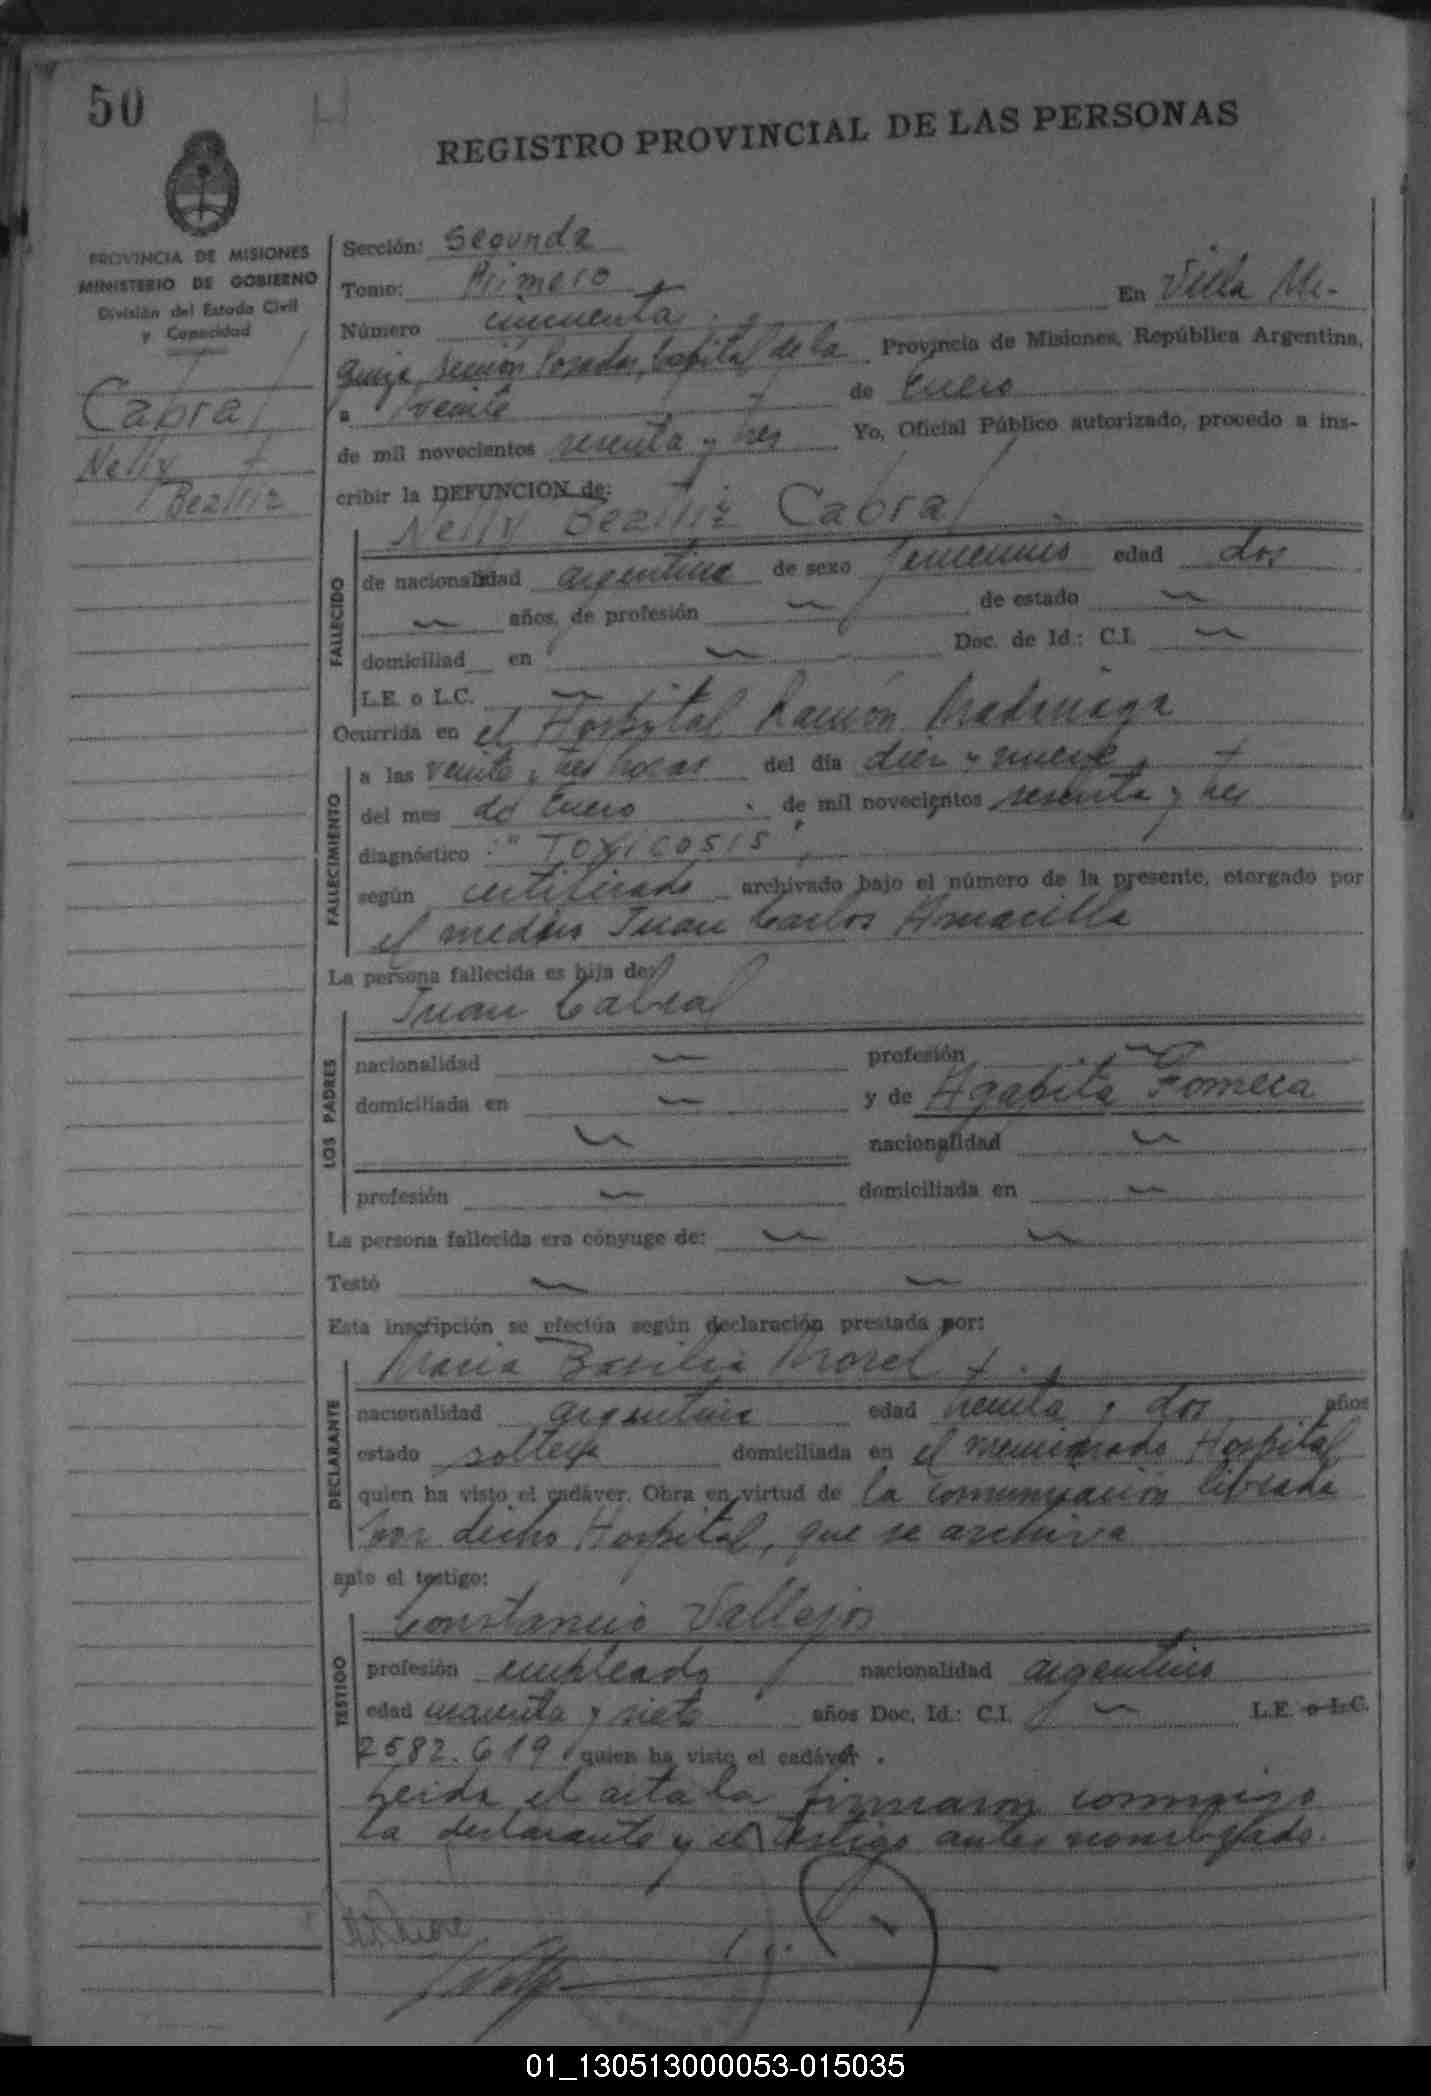 50
REGISTRO PROVINCIAL DE LAS PERSONAS
PROVINCIA DE MISIONES
MINISTERIO DE GOBIERNO
División del Estado Civil
y Capacidad
Cabral
Nelly
Beatriz
Sección: Segunda
Tomo: Primero
Número cincuenta En Villa Ur-
quiza, Sección Posadas, Capital de la Provincia de Misiones, República Argentina,
a veinte de Enero
de mil novecientos sesenta y tres Yo, Oficial Público autorizado, procedo a ins-
cribir la DEFUNCION de:
Nelly Beatriz Cabral
FALLECIDO
de nacionalidad argentina de sexo femenino edad dos
años, de profesión de estado
domiciliad en Doc. de Id.: C.I.
L.E. o L.C.
Ocurrida en el Hospital Ramón Madariaga
FALLECIMIENTO
a las veinte y tres horas del día diez y nueve
del mes de Enero de mil novecientos sesenta y tres
diagnóstico: "TOXICOSIS"
según certificado archivado bajo el número de la presente, otorgado por
el medico Juan Carlos Amarilla
La persona fallecida es hija de:
Juan Cabral
LOS PADRES
nacionalidad profesión
domiciliada en y de Agapita
nacionalidad
profesión domiciliada en
La persona fallecida era cónyuge de:
Testó
Esta inscripción se efectúa según declaración prestada por:
Maria Basilia Morel
DECLARANTE
nacionalidad argentina edad treinta y dos años
estado soltera domiciliada en el mencionado Hospital
quien ha visto el cadáver. Obra en virtud de la comunicación librada
por dicho Hospital, que se archiva
ante el testigo:
Constancio Vallejos
TESTIGO
profesión empleado nacionalidad argentino
edad cuarenta y siete años Doc. Id.: C.I. L.E. o L.C.
2582.619 quien ha visto el cadáver.
Leida el acta la firmaron conmigo
la declarante y el testigo antes nombrado.
01_130513000053-015035